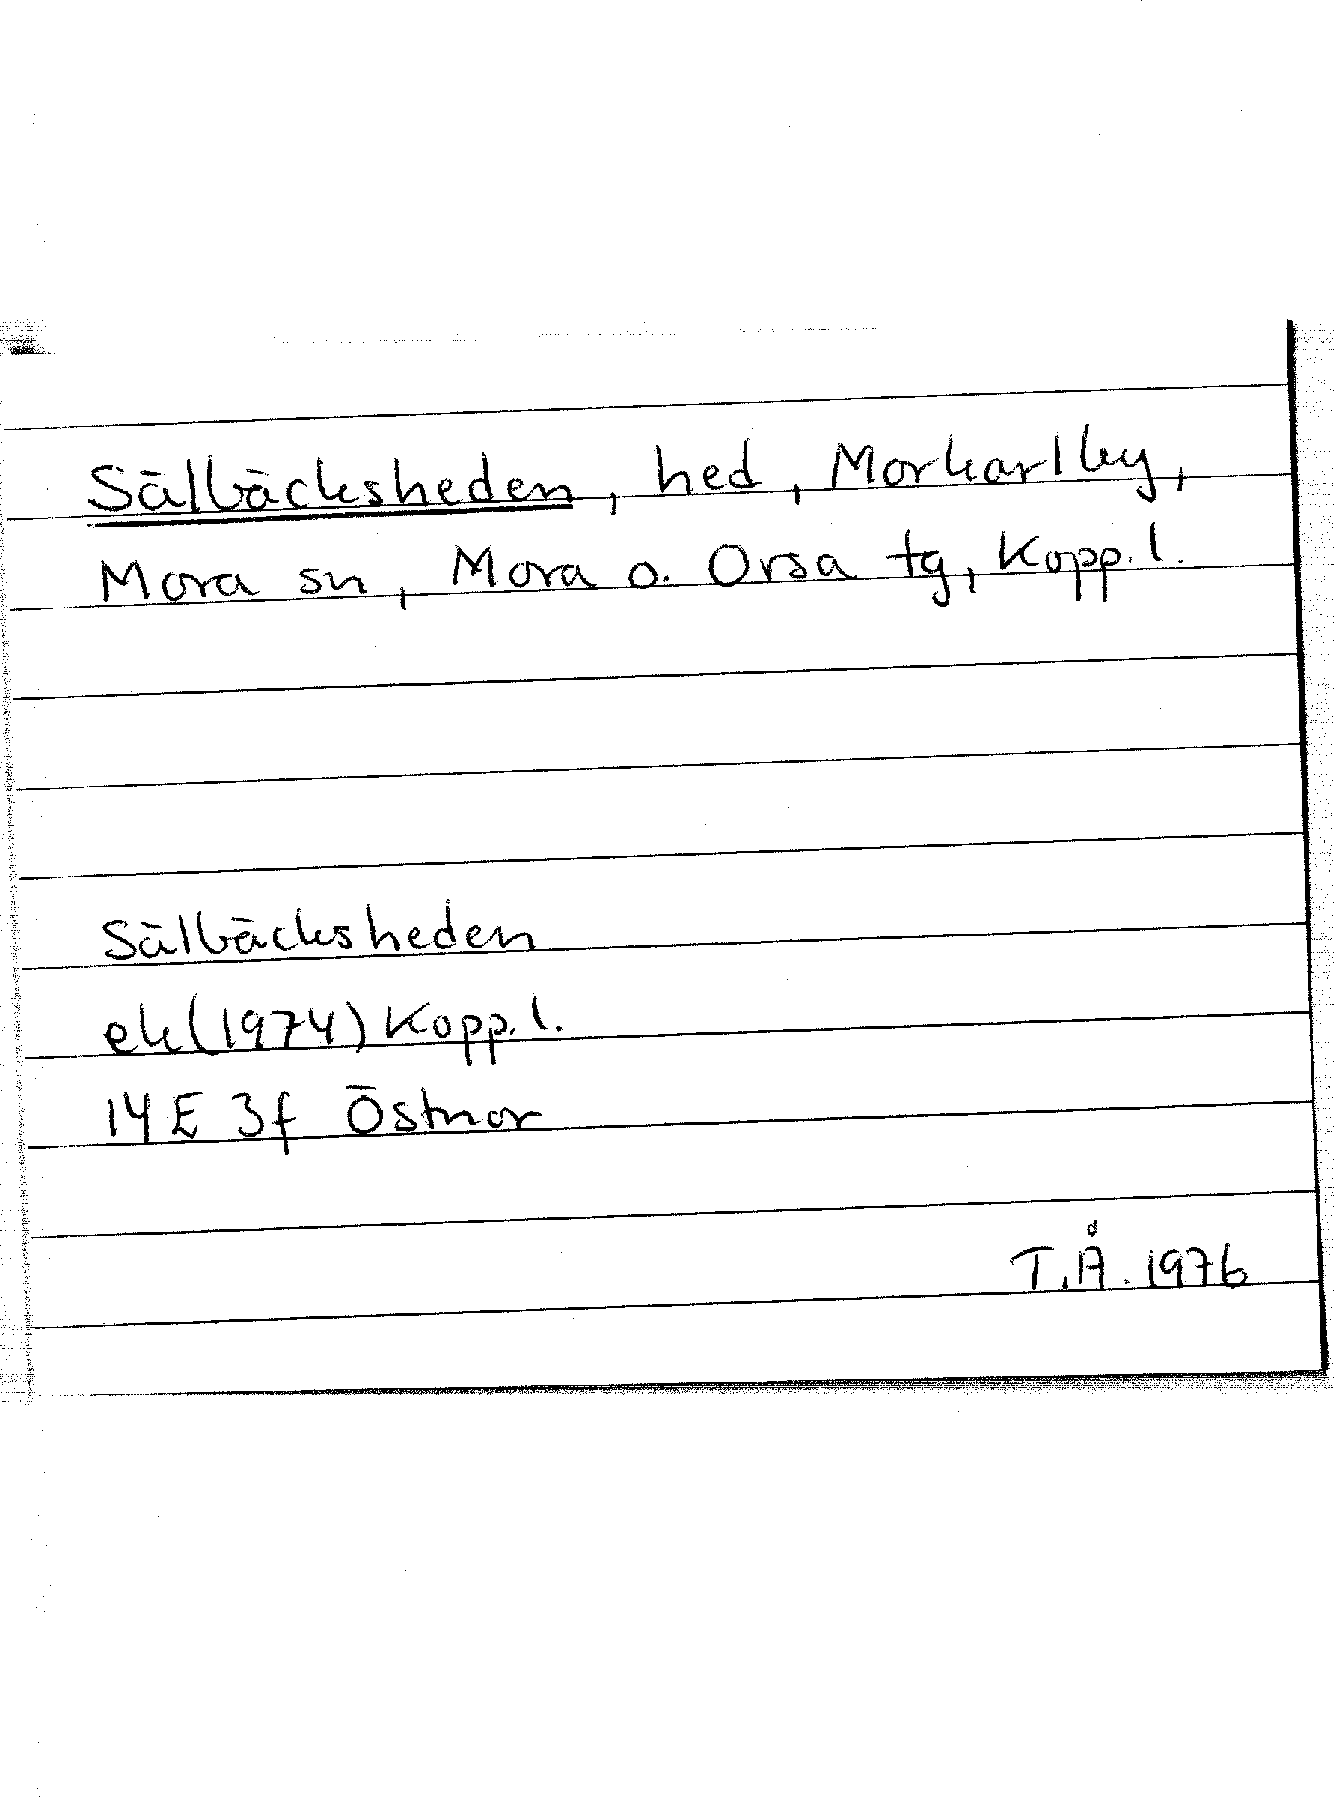 Sälbäcksheden, hed, Morkarlby,
Mora sn, Mora o. Orsa tg, Kopp. l.
Sälbäcksheden
ek (1974) Kopp. l.
14 E 3f Östnor
T.Å. 1976